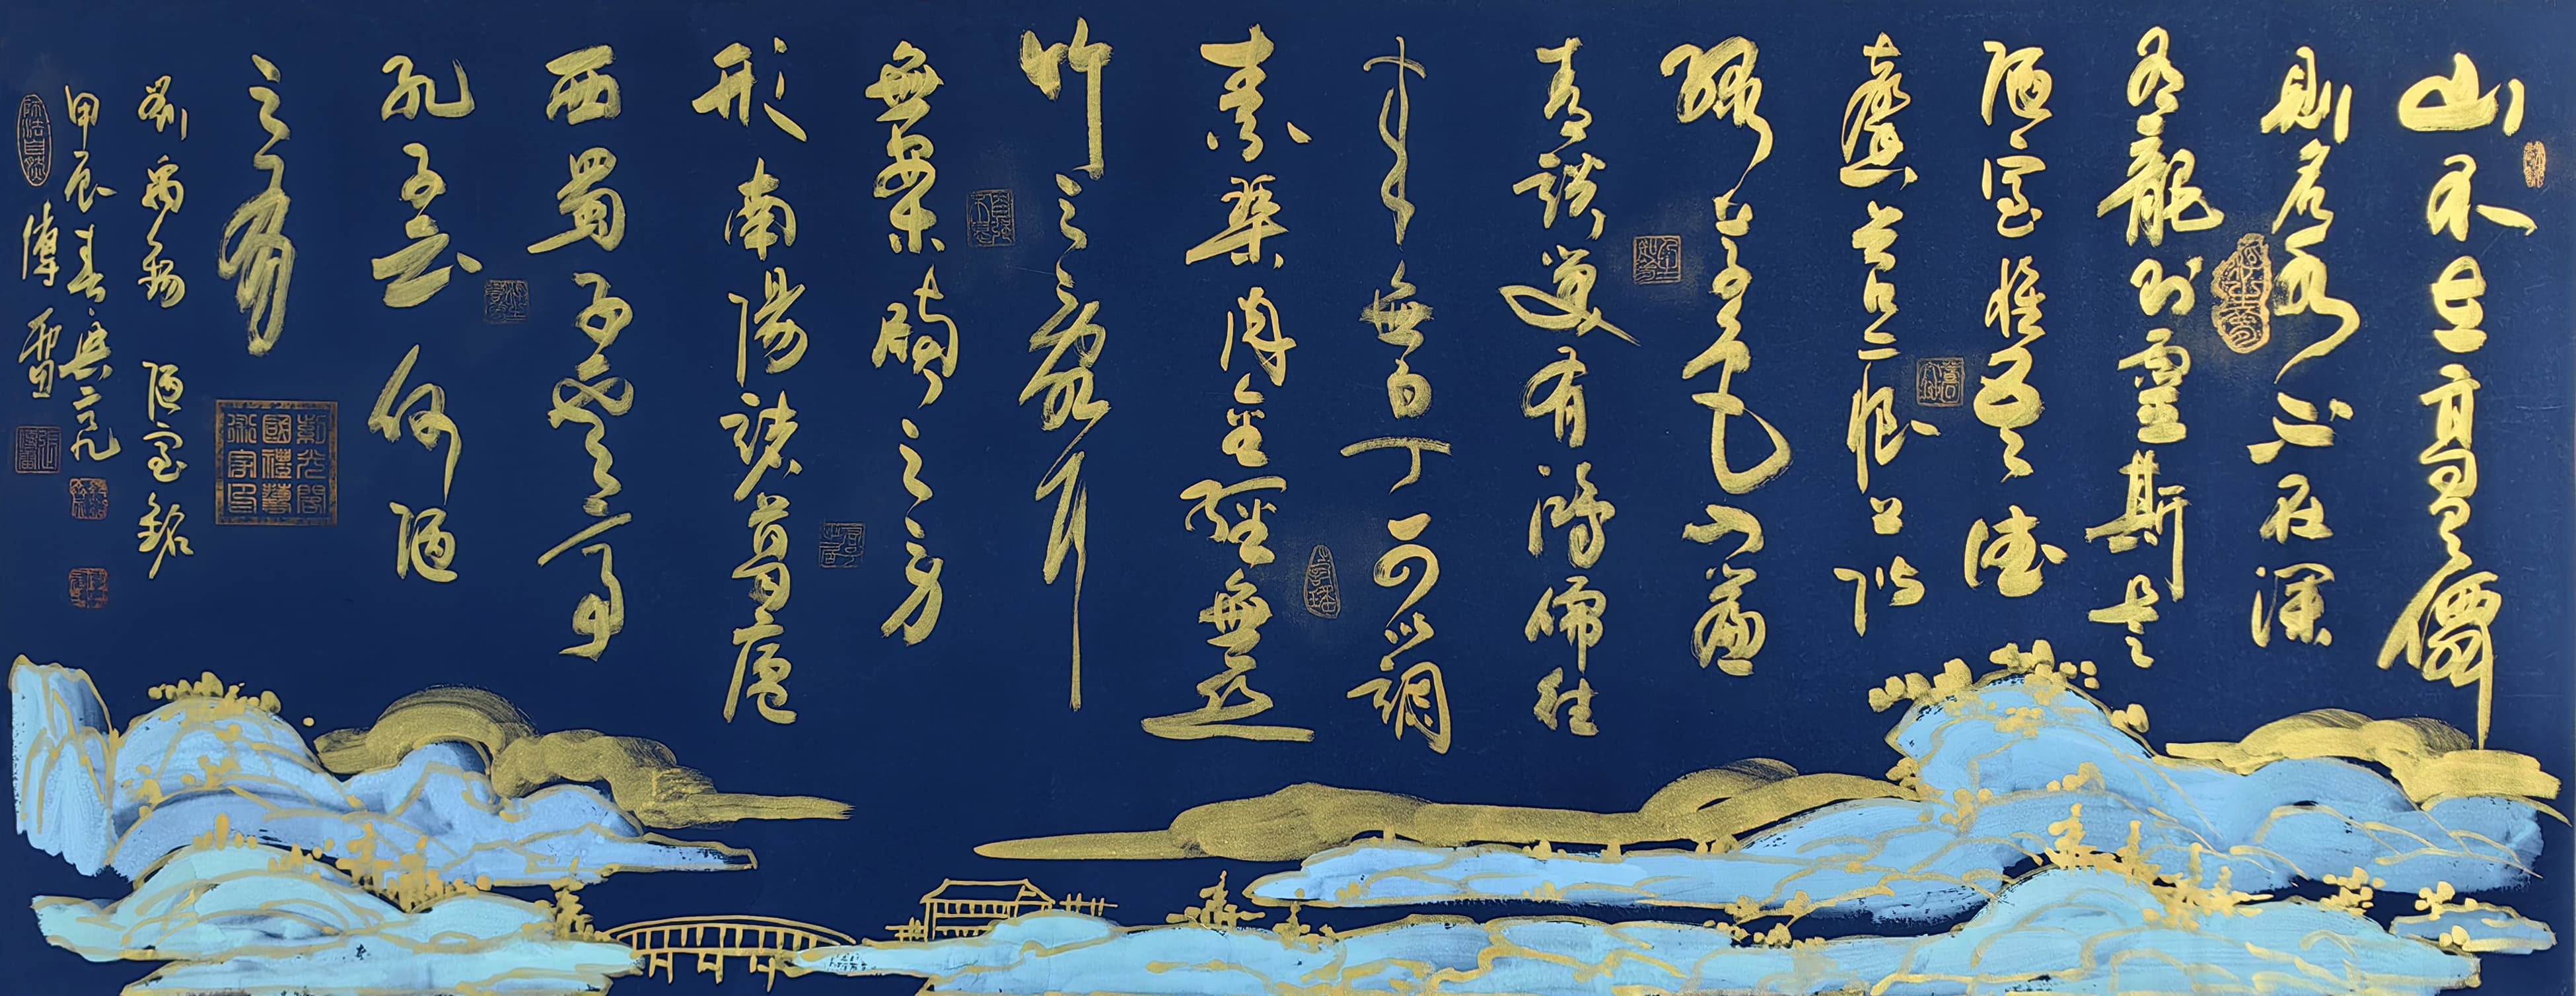 山不在高有僊
則名水不在深
有龍則靈斯是
陋室惟吾德
馨苔痕上階
綠草色入簾
青談笑有鴻儒往
來無白丁可以調
素琴閱金經無絲
竹之亂耳
無案牘之勞
形南陽諸葛廬
西蜀子雲亭
孔子云何陋
之有
紫光閣國禮藝術家印
劉禹錫 陋室銘
甲辰春
師法自然